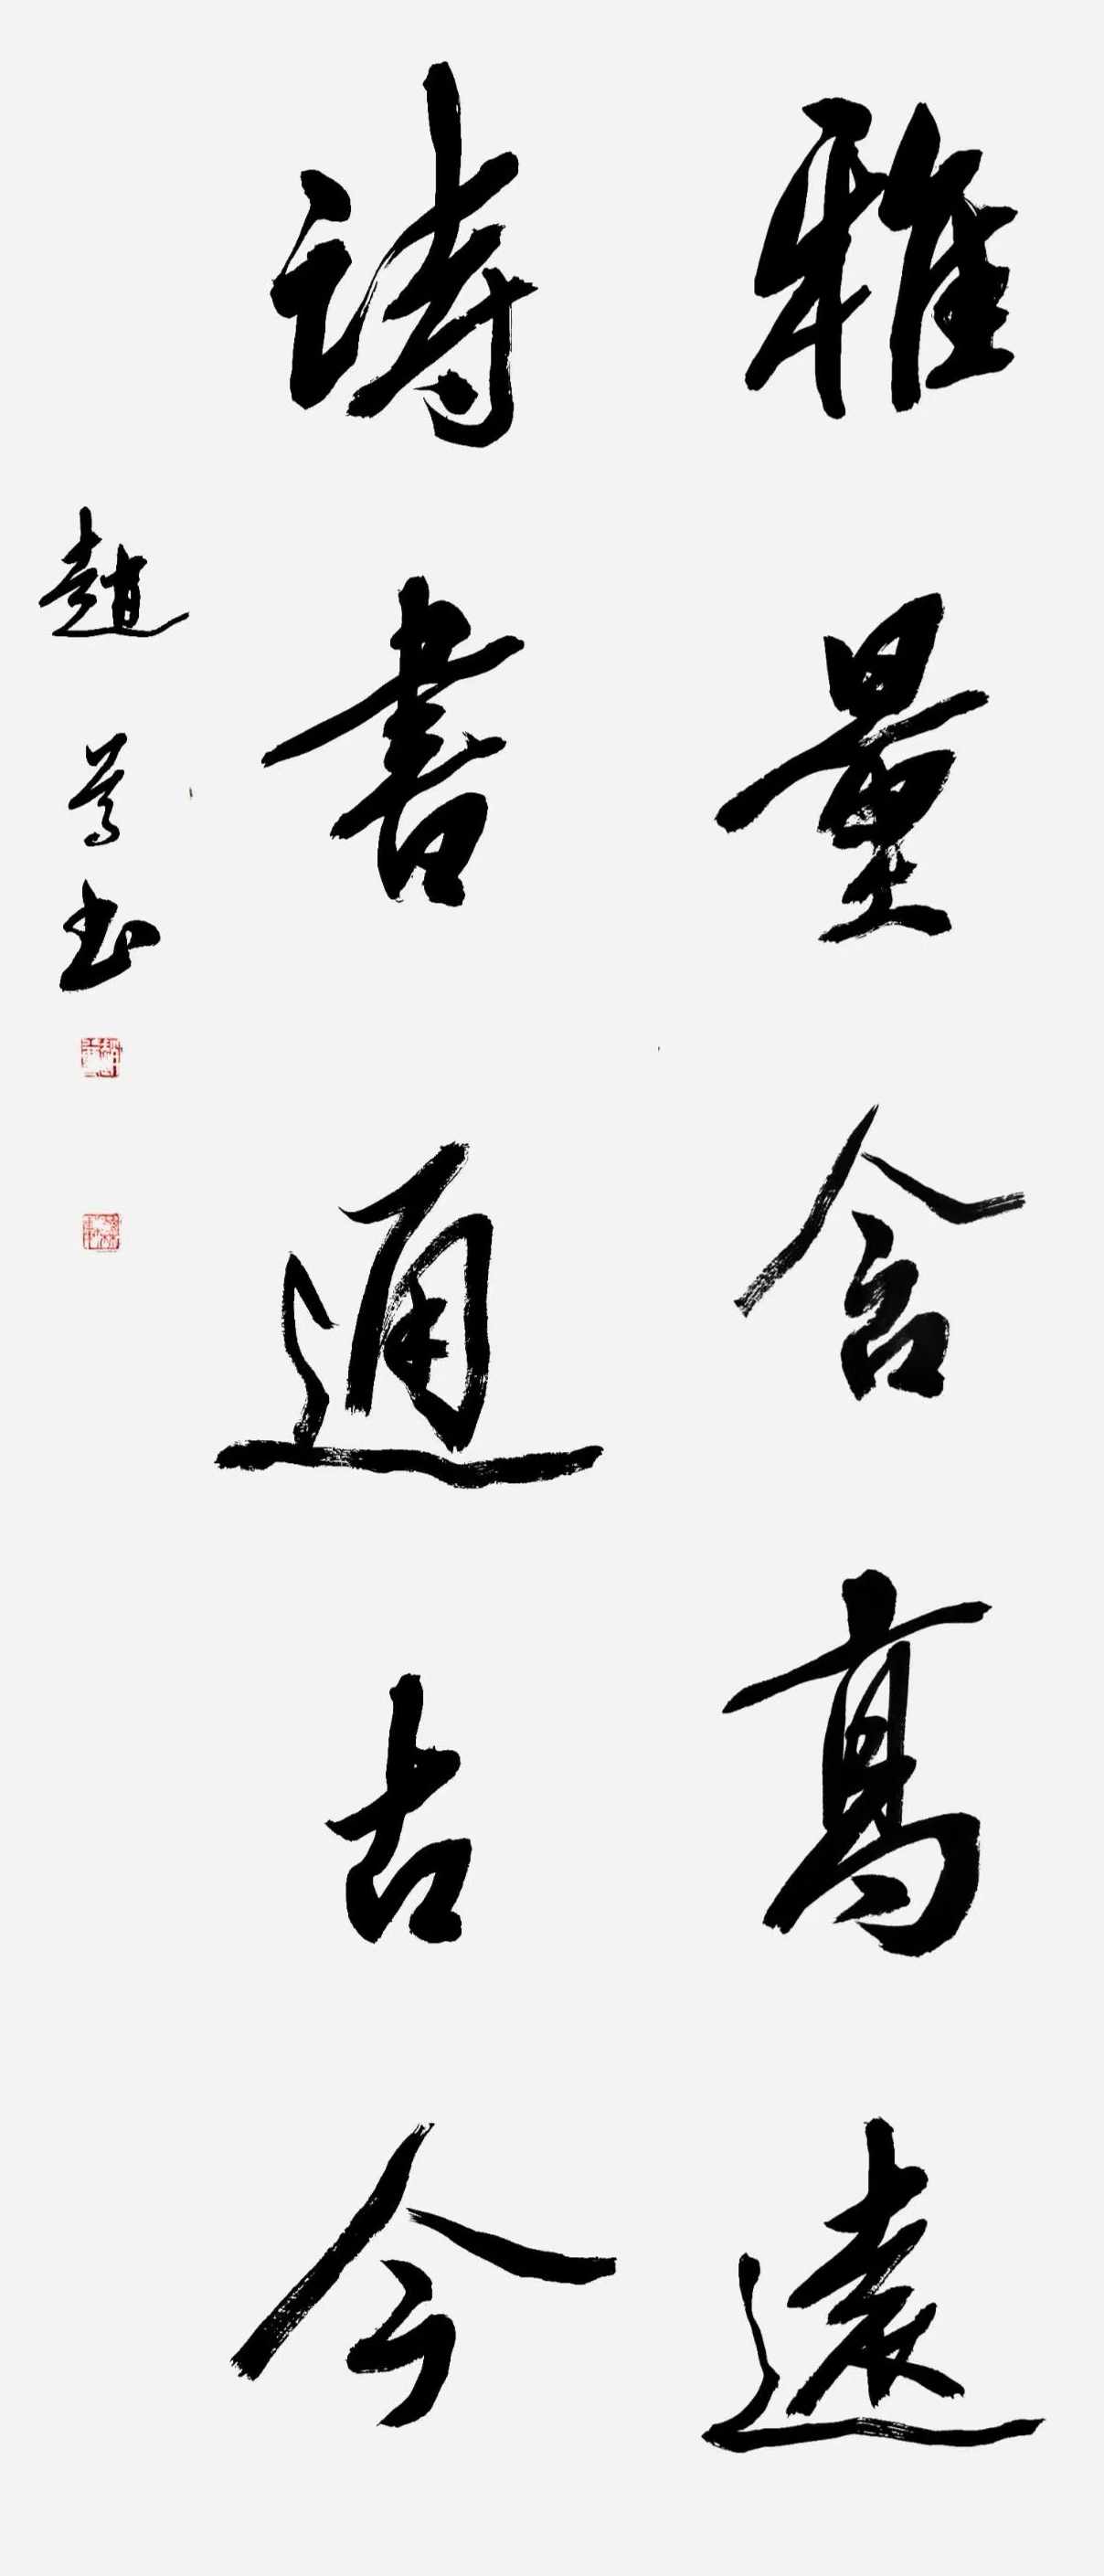 雅量含高遠
詩書通古今
趙尊书